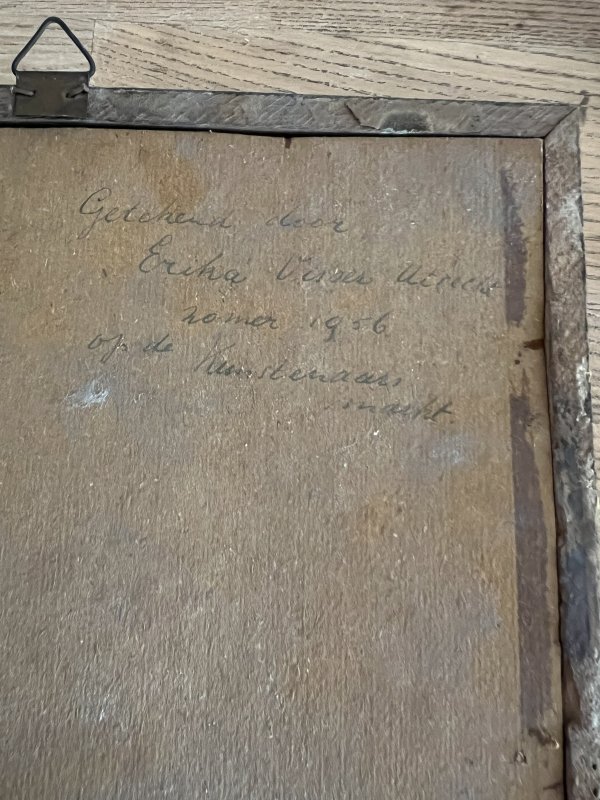 Getekend door
Erika Visser Utrecht
zomer 1956
op de Kunstenaars
markt.